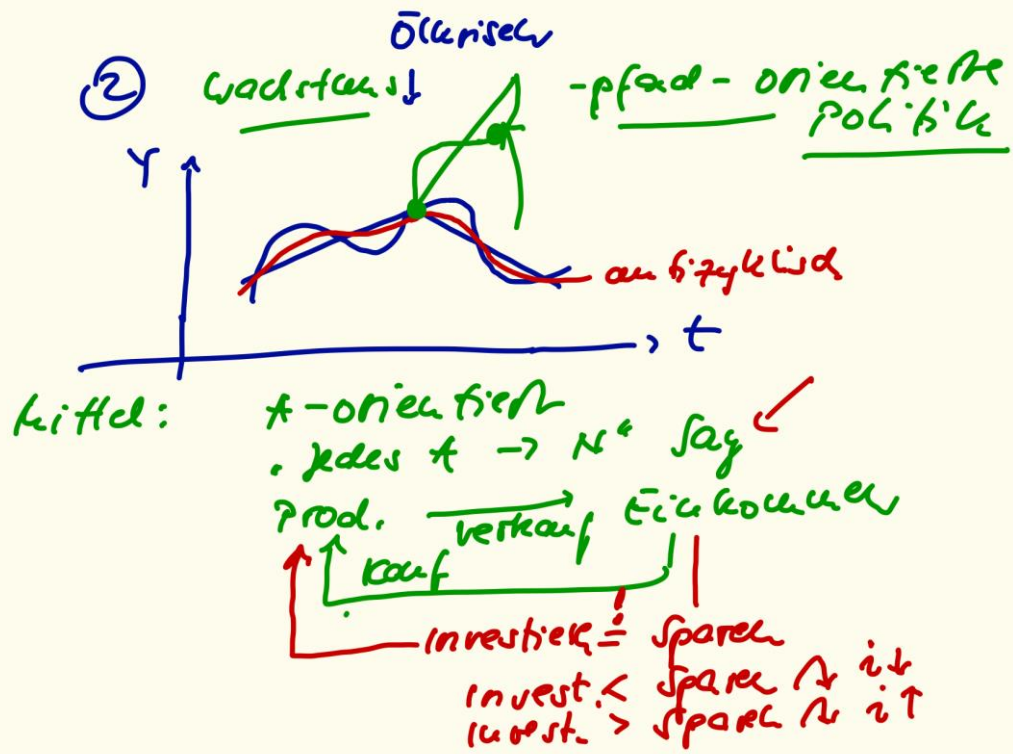 Ölkrisen
② Wachstums ↓ -pfad- orientierte
Politik
Y
antizyklisch
t
Mittel: A-orientiert
. jedes A → N" Say
Prod. verkauf Einkommen
Kauf
investieren = sparen
invest. < sparen ⇒ i↓
invest. > sparen ⇒ i↑